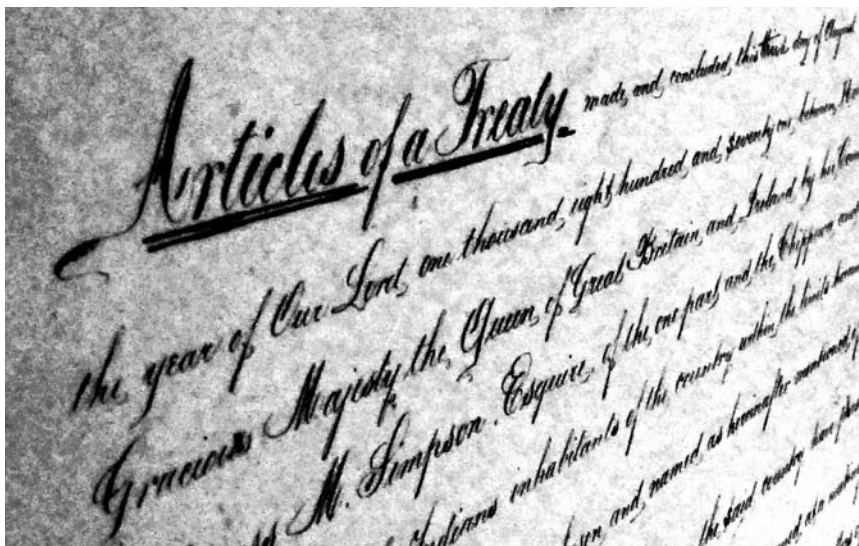 Articles of a Treaty made and concluded this third day of August
the year of Our Lord one thousand eight hundred and seventy one, between, H
Gracious Majesty the Queen of Great Britain and Ireland by her Com
M. Simpson. Esquire, of the one part and the Chippewa and
Indians inhabitants of the country within the limits herein
and named as hereinafter mentioned of
the said country have
as a